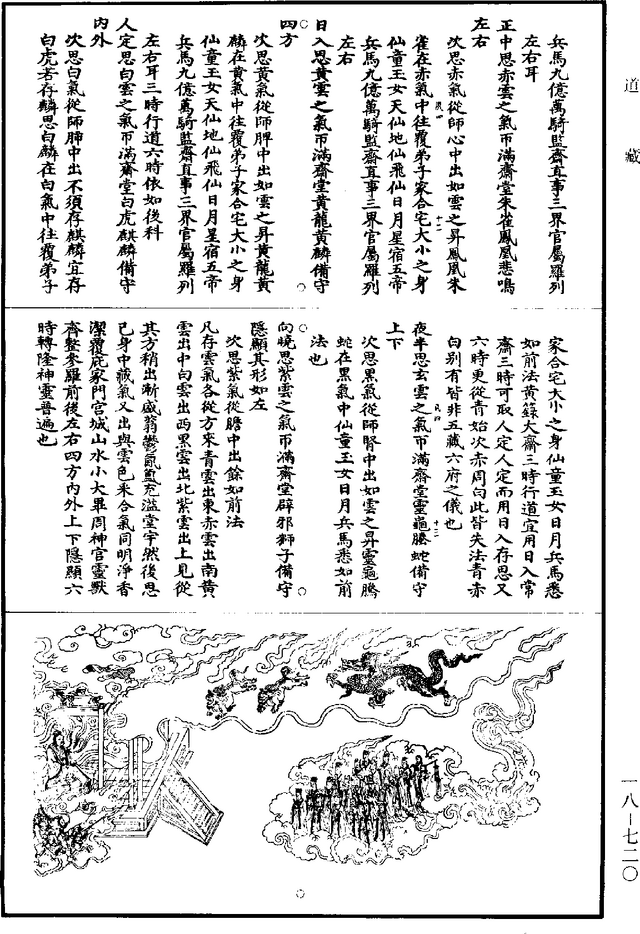 道藏
兵馬九億萬騎監齋直事三界官屬羅列
左右耳
正中思赤雲之氣帀滿齋堂朱雀鳳凰悲鳴
左右
次思赤氣從師心中出如雲之昇鳳凰朱
雀在赤氣中往覆弟子家合宅大小之身
仙童玉女天仙地仙飛仙日月星宿五帝
兵馬九億萬騎監齋直事三界官屬羅列
左右
日入思黃雲之氣帀滿齋堂黃龍黃麟備守
四方
次思黃氣從師脾中出如雲之昇黃龍黃
麟在黃氣中往覆弟子家合宅大小之身
仙童玉女天仙地仙飛仙日月星宿五帝
兵馬九億萬騎監齋直事三界官屬羅列
左右耳三時行道六時依如後科
人定思白雲之氣帀滿齋堂白虎麒麟備守
內外
次思白氣從師肺中出不須存麒麟宜存
白虎若存麟思白麟在白氣中往覆弟子
家合宅大小之身仙童玉女日月兵馬悉
如前法黃籙大齋三時行道宜用日入常
齋三時可取人定人定而用日入存思又
六時更從青始次赤周白此皆失法青赤
白別有皆非五藏六府之儀也
夜半思玄雲之氣帀滿齋堂靈龜螣蛇備守
上下
次思黑氣從師腎中出如雲之昇靈龜螣
蛇在黑氣中仙童玉女日月兵馬悉如前
法也
向曉思紫雲之氣帀滿齋堂辟邪獅子備守
隱顯其形如左
次思紫氣從膽中出餘如前法
凡存雲氣各從方來青雲出東赤雲出南黃
雲出中白雲出西黑雲出北紫雲出上見從
其方稍出漸盛蓊鬱氤氳充溢堂宇然後思
己身中藏氣又出與雲色釆合氣同明淨香
潔覆庇家門宮城山水小大畢周神官靈獸
齊整參羅前後左右四方內外上下隱顯六
時轉隆神靈普遍也
一八－七二〇